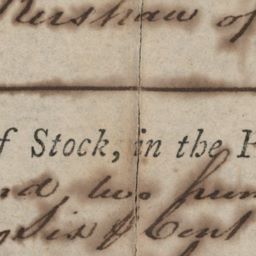 Kershaw of
of Stock, in the
and, two hun
Six P Cent